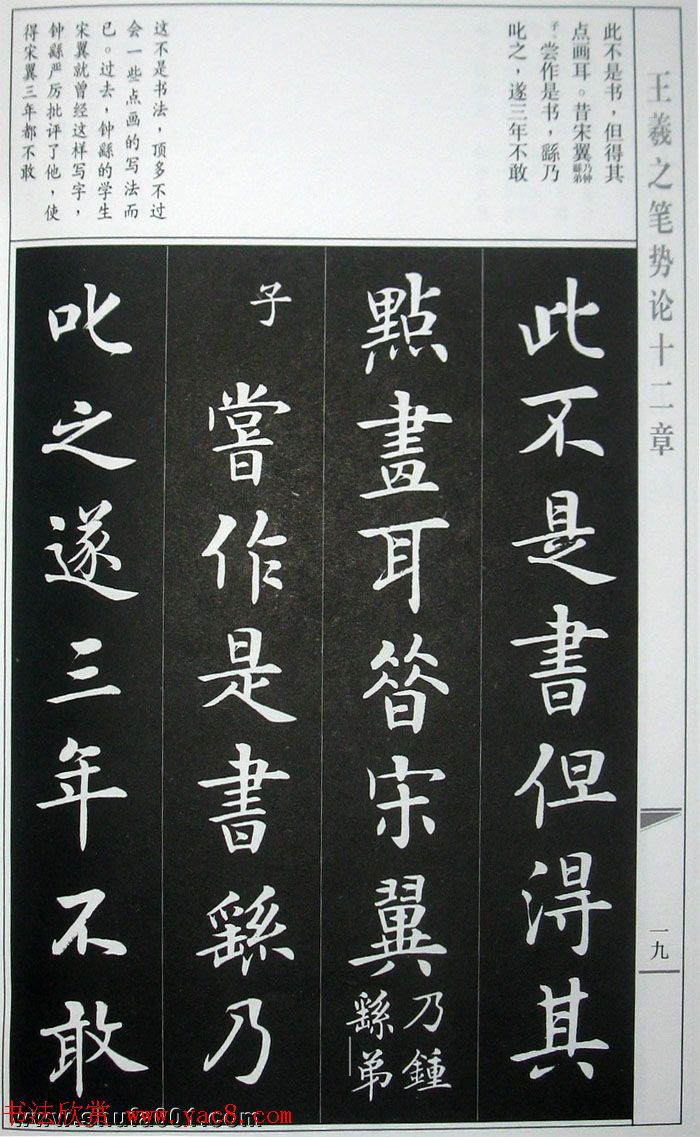 王羲之笔势论十二章
一九
此不是书,但得其
点画耳。昔宋翼乃钟繇弟
子,尝作是书,繇乃
叱之,遂三年不敢
这不是书法,顶多不过
会一些点画的写法而
已。过去,钟繇的学生
宋翼就曾经这样写字,
钟繇严厉批评了他,使
得宋翼三年都不敢
此不是書但得其
點畫耳昔宋翼乃鍾繇弟
子嘗作是書繇乃
叱之遂三年不敢
书法欣赏 www.yac8.com